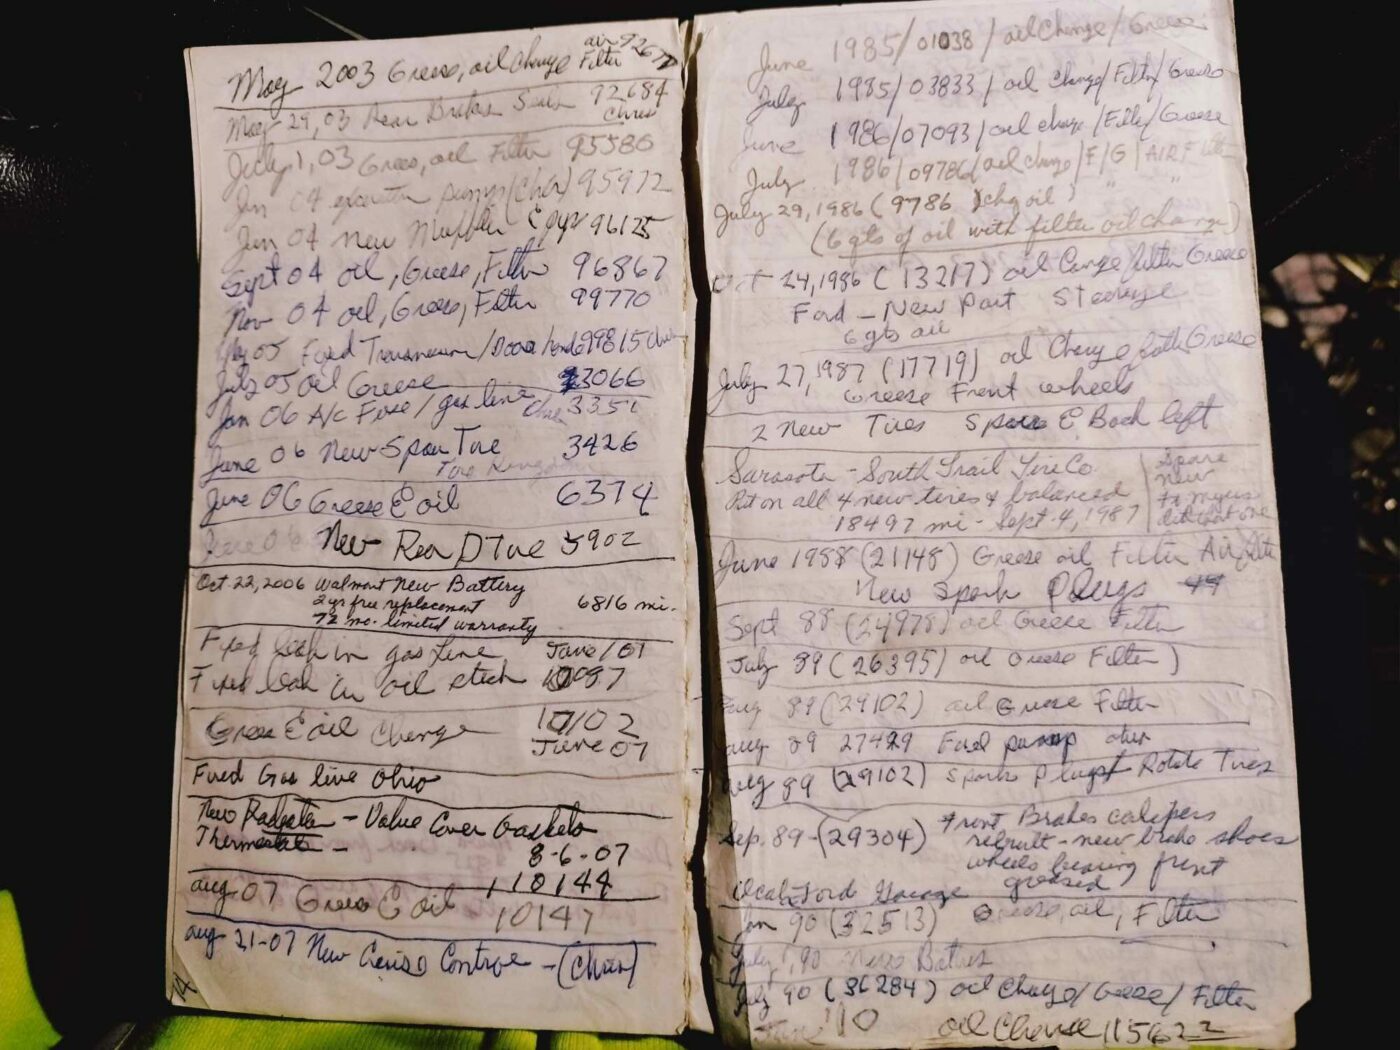 May 2003 Grease, oil Change air Filter 9267
May 29, 03 Rear Brakes Seals 92684
Chris
July 1, 03 Grees, oil Filter 95580
Jan 04 pump (Chris) 95972
Jun 04 New Muffler 96125
Sept 04 oil, Greese, Filter 96867
Nov 04 oil, Greese, Filter 99770
05 Fixed 99815 Chris
July 05 Oil Greese 3066
Jan 06 A/C Fuse / gas line 3351
June 06 New Spare Tire 3426
Tire Kingdom
June 06 Greese & oil 6374
June 06 New Rear D Tire 5902
Oct 22, 2006 Walmart New Battery
2 yr free replacement 6816 mi.
72 mo. limited warranty
Fixed leak in gas line June/07
Fixed leak in oil 10097
Grease & oil Change 10102
June 07
Fixed Gas line Ohio
New Radiator - Value Cover Gaskets
Thermostat - 8-6-07
110144
aug 07 Grees & oil 10147
aug 21-07 New Control - (Chris)
14
June 1985/01038/oil Change/Grease
July 1985/03833/oil change/Filter/Grease
June 1986/07093/oil change/Filter/Greese
July 1986/09786/oil change/F/G/AIR Filter
July 29, 1986 (9786 chg oil) " "
(6 qts of oil with filter oil change)
Oct 24, 1986 (13217) oil Cange filter Greese
Ford - New Part
6 qts oil
July 27, 1987 (17719) oil Change Greese
Greese Front wheels
2 New Tires Spare & Back left
Sarasota - South Trail Tire Co.
Put on all 4 new tires & balanced
18497 mi - Sept. 4, 1987
spare
new
June 1988 (21148) Greese oil Filter Air
New Spark Plugs
Sept 88 (24978) oil Greese Filter
July 89 (26395) oil Greese Filter)
Aug 89 (29102) oil Greese Filter
aug 89 27499 Fuel pump
Aug 89 (29102) Spark Plugs Rotate Tires
Sep. 89 - (29304) Front Brakes calipers
rebuilt - new brake shoes
wheels bearing front
greased
Ford Garage
Jan 90 (32513) Grease, oil, Filter
July 1, 90 New
July 90 (36284) oil Change/Greese/Filter
June '10 oil Change 115622